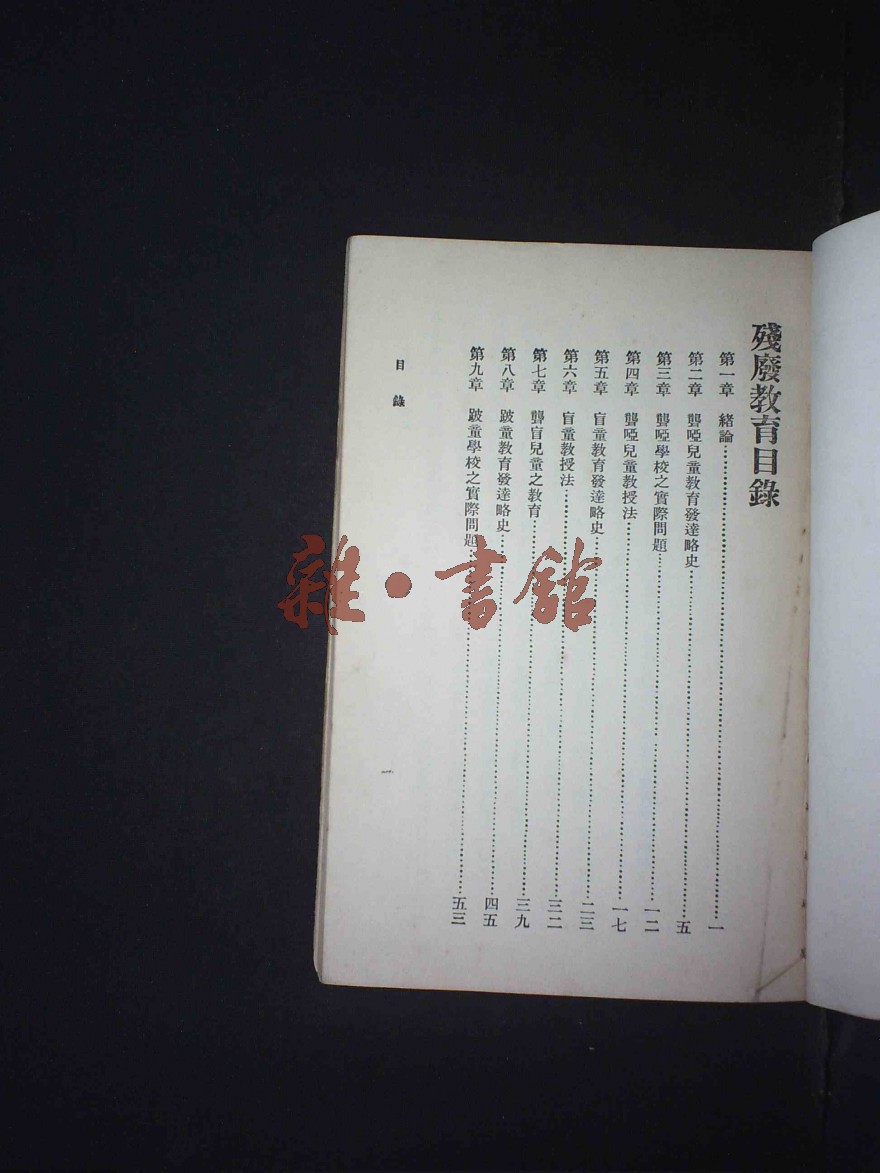 殘廢教育目錄
第一章 緒論…………一
第二章 聾啞兒童教育發達略史…………五
第三章 聾啞學校之實際問題…………一二
第四章 聾啞兒童教授法…………一七
第五章 盲童教育發達略史…………二三
第六章 盲童教授法…………三二
第七章 聾盲兒童之教育…………三九
第八章 跛童教育發達略史…………四五
第九章 跛童學校之實際問題…………五三
目錄
一
雜·書館